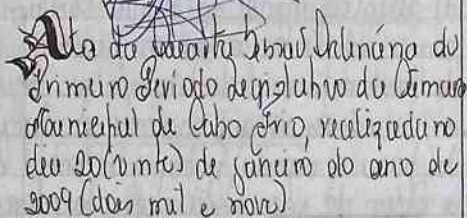 Ata da Quarta Sessão Ordinária do
Primeiro Período Legislativo da Câmara
Municipal de Cabo Frio, realizada no
dia 20 (vinte) de janeiro do ano de
2009 (dois mil e nove)